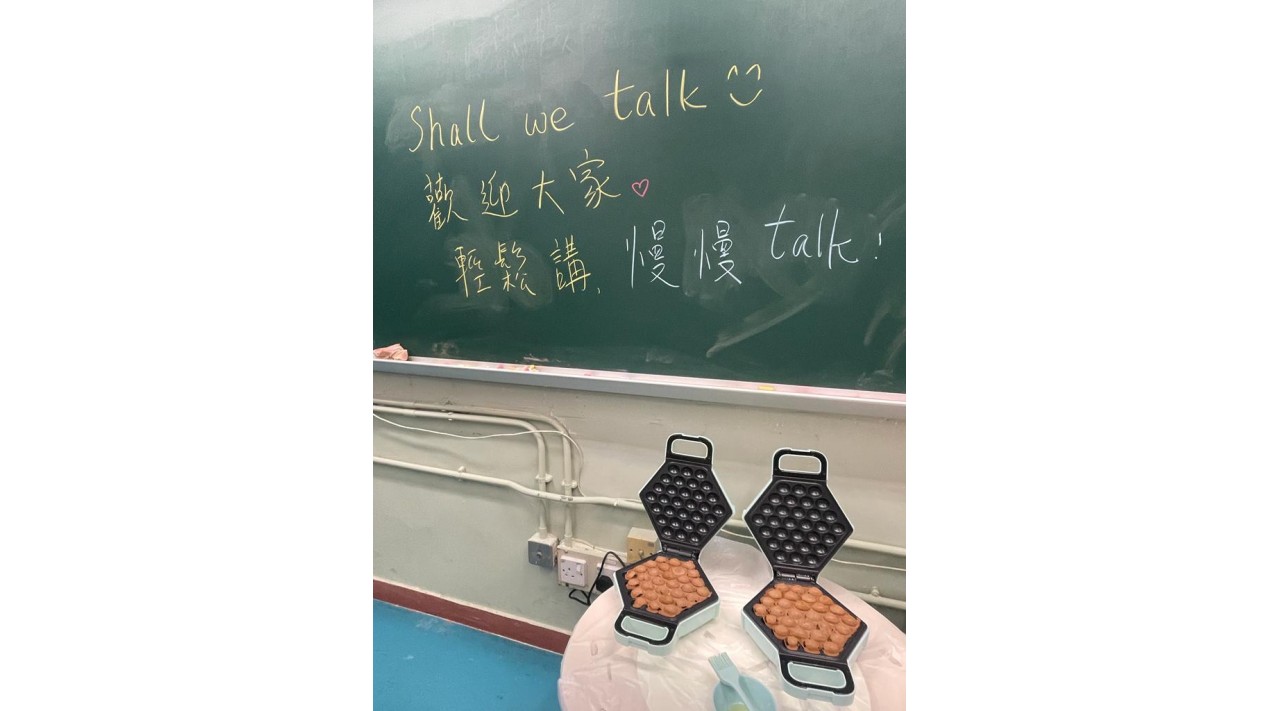 Shall we talk
歡迎大家
輕鬆講, 慢慢 talk!